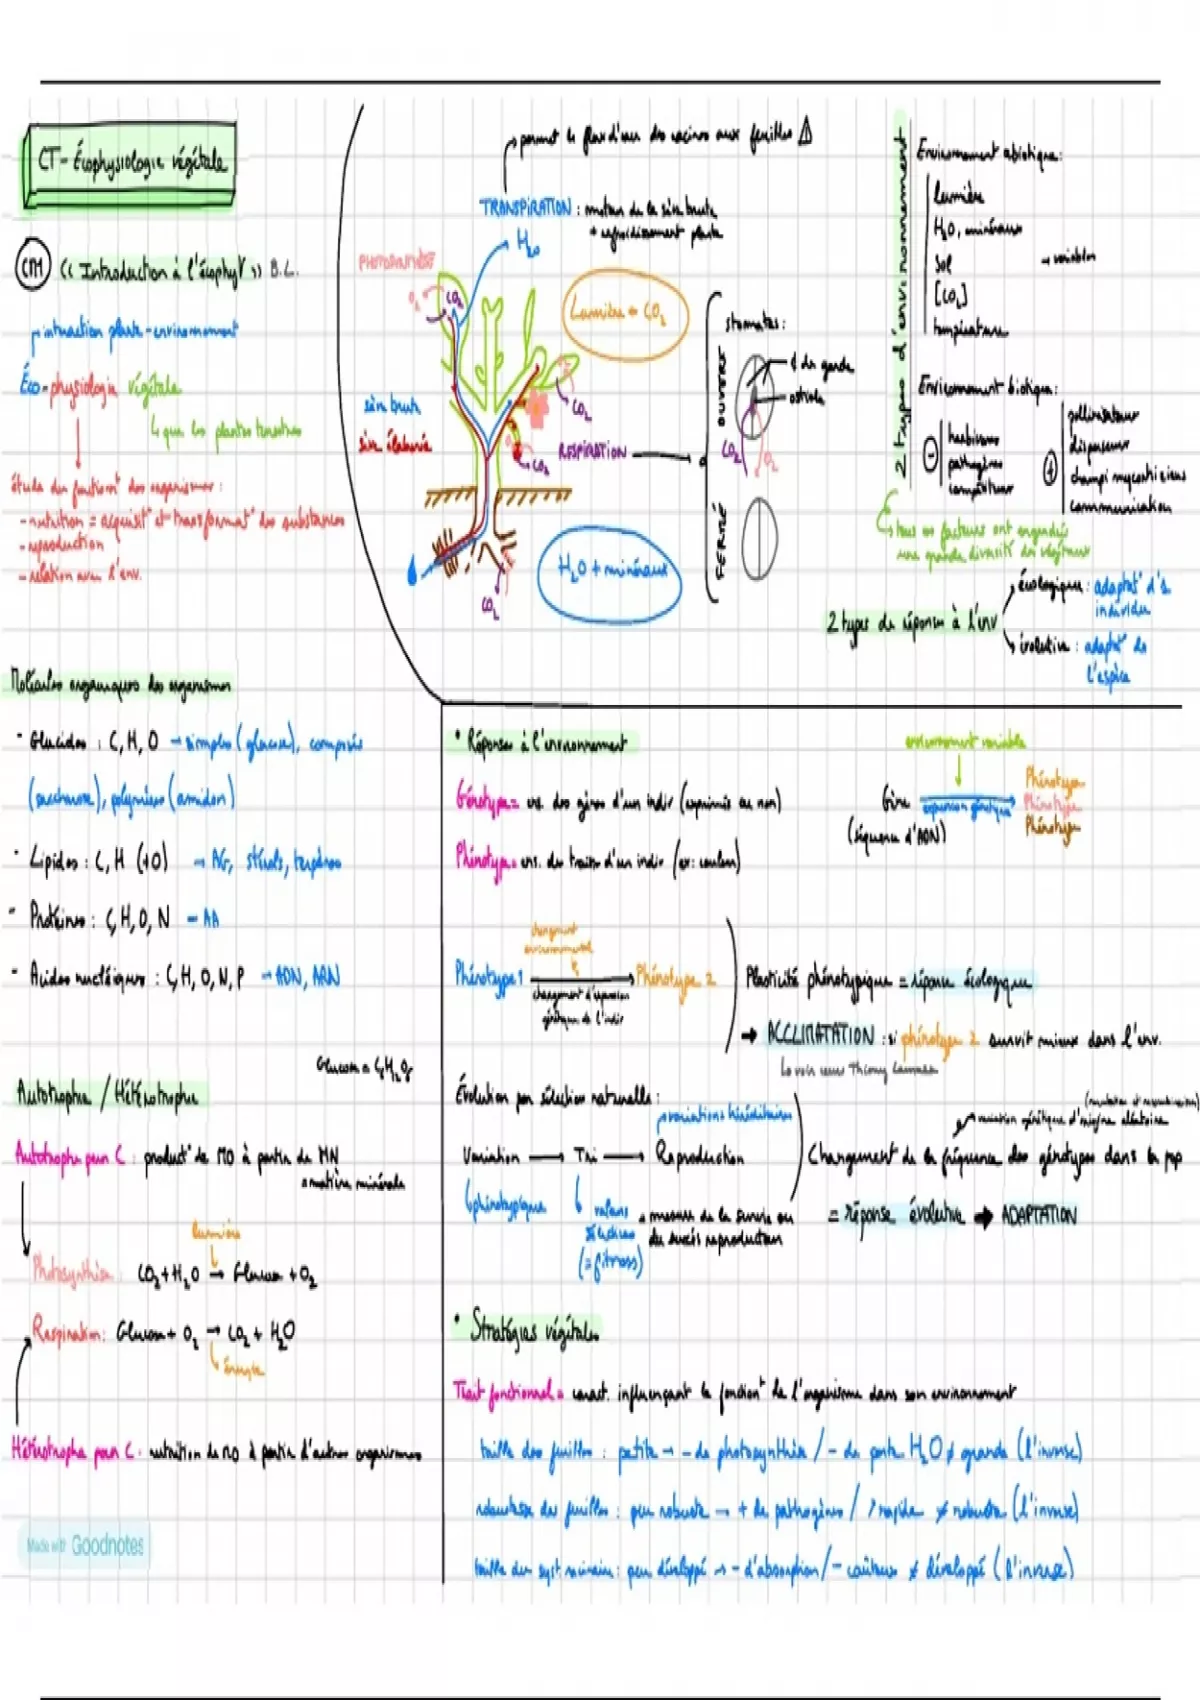 CT - Écophysiologie végétale
CM1 << Introduction à l'écophy° >> B.L.
interaction plante - environnement
Éco - physiologie végétale
que les plantes terrestres
étude du fonction^t des organismes :
- nutrition = acquisit° et transformat° des substances
- reproduction
- relation avec l'env.
permet le flux d'eau des racines aux feuilles
TRANSPIRATION : moteur de la sève brute
+ refroidissement plante
H2O
PHOTOSYNTHÈSE
O2
CO2
Lumière + CO2
sève brute
sève élaborée
CO2
CO2
RESPIRATION
H2O + minéraux
CO2
stomates :
OUVERT
de garde
ostiole
CO2
O2
FERMÉ
2 types d'environnement
Environnement abiotique :
lumière
H2O, minéraux
sol
→ variables
[CO2]
température
Environnement biotique :
- herbivores
pathogènes
compétiteurs
+ pollinisateur
disperseur
champi mycorhiziens
communication
tous ces facteurs ont engendrés
une grande diversité des végétaux
2 types de réponse à l'env
écologique : adaptat° d'1
individu
évolutive : adaptat° de
l'espèce
Molécules organiques des organismes
- Glucides : C, H, O → simples (glucose), composés
(saccharose), polymères (amidon)
- Lipides : C, H (+O) → AG, stérols, terpènes
- Protéines : C, H, O, N → AA
- Acides nucléiques : C, H, O, N, P → ADN, ARN
Autotrophe / Hétérotrophe
Autotrophe pour C : product° de MO à partir de MN
= matière minérale
lumière
Photosynthèse : CO2 + H2O → Glucose + O2
Respiration : Glucose + O2 → CO2 + H2O
énergie
Hétérotrophe pour C : nutrition de MO à partir d'autres organismes
Made with Goodnotes
• Réponses à l'environnement
Génotype = ens. des gènes d'un indiv (exprimés ou non)
Phénotype = ens. des traits d'un indiv (ex : couleur)
environnement variable
Gène
(séquence d'ADN)
expression génétique
Phénotype
Phénotype
Phénotype
changement
environnemental
Phénotype 1 → Phénotype 2
changement d'expression
génétique de l'indiv
Plasticité phénotypique = réponse écologique
→ ACCLIMATATION : si phénotype 2 survit mieux dans l'env.
Évolution par sélection naturelle :
variations héréditaires
Variation → Tri → Reproduction
phénotypique
valeur
sélective
(= fitness)
= mesure de la survie ou
du succès reproduction
(mutation et recombinaison)
variation génétique d'origine aléatoire
Changement de la fréquence des génotypes dans la pop
= réponse évolutive → ADAPTATION
• Stratégies végétales
Trait fonctionnel = caract. influençant la fonction^t de l'organisme dans son environnement
taille des feuilles : petite → - de photosynthèse / - de perte H2O ≠ grande (l'inverse)
robustesse des feuilles : peu robuste → + de pathogènes / rapide ≠ robuste (l'inverse)
taille du syst. racinaire : peu développé → - d'absorption / - coûteux ≠ développé (l'inverse)